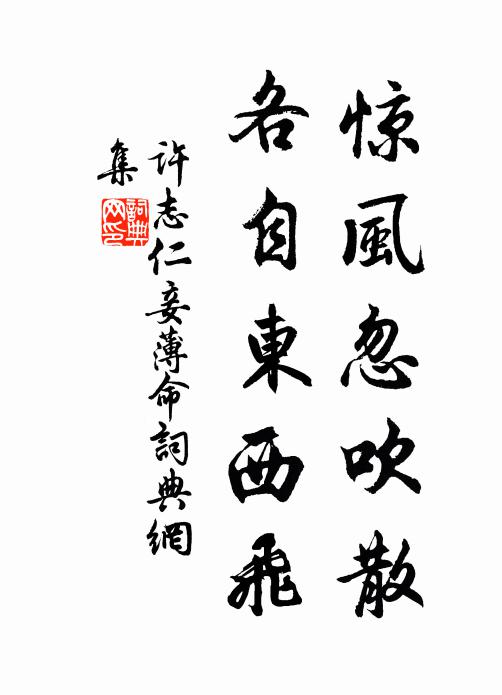 惊風忽吹散
各自東西飛
許志仁妾薄命詞典網
集
詞典
网印